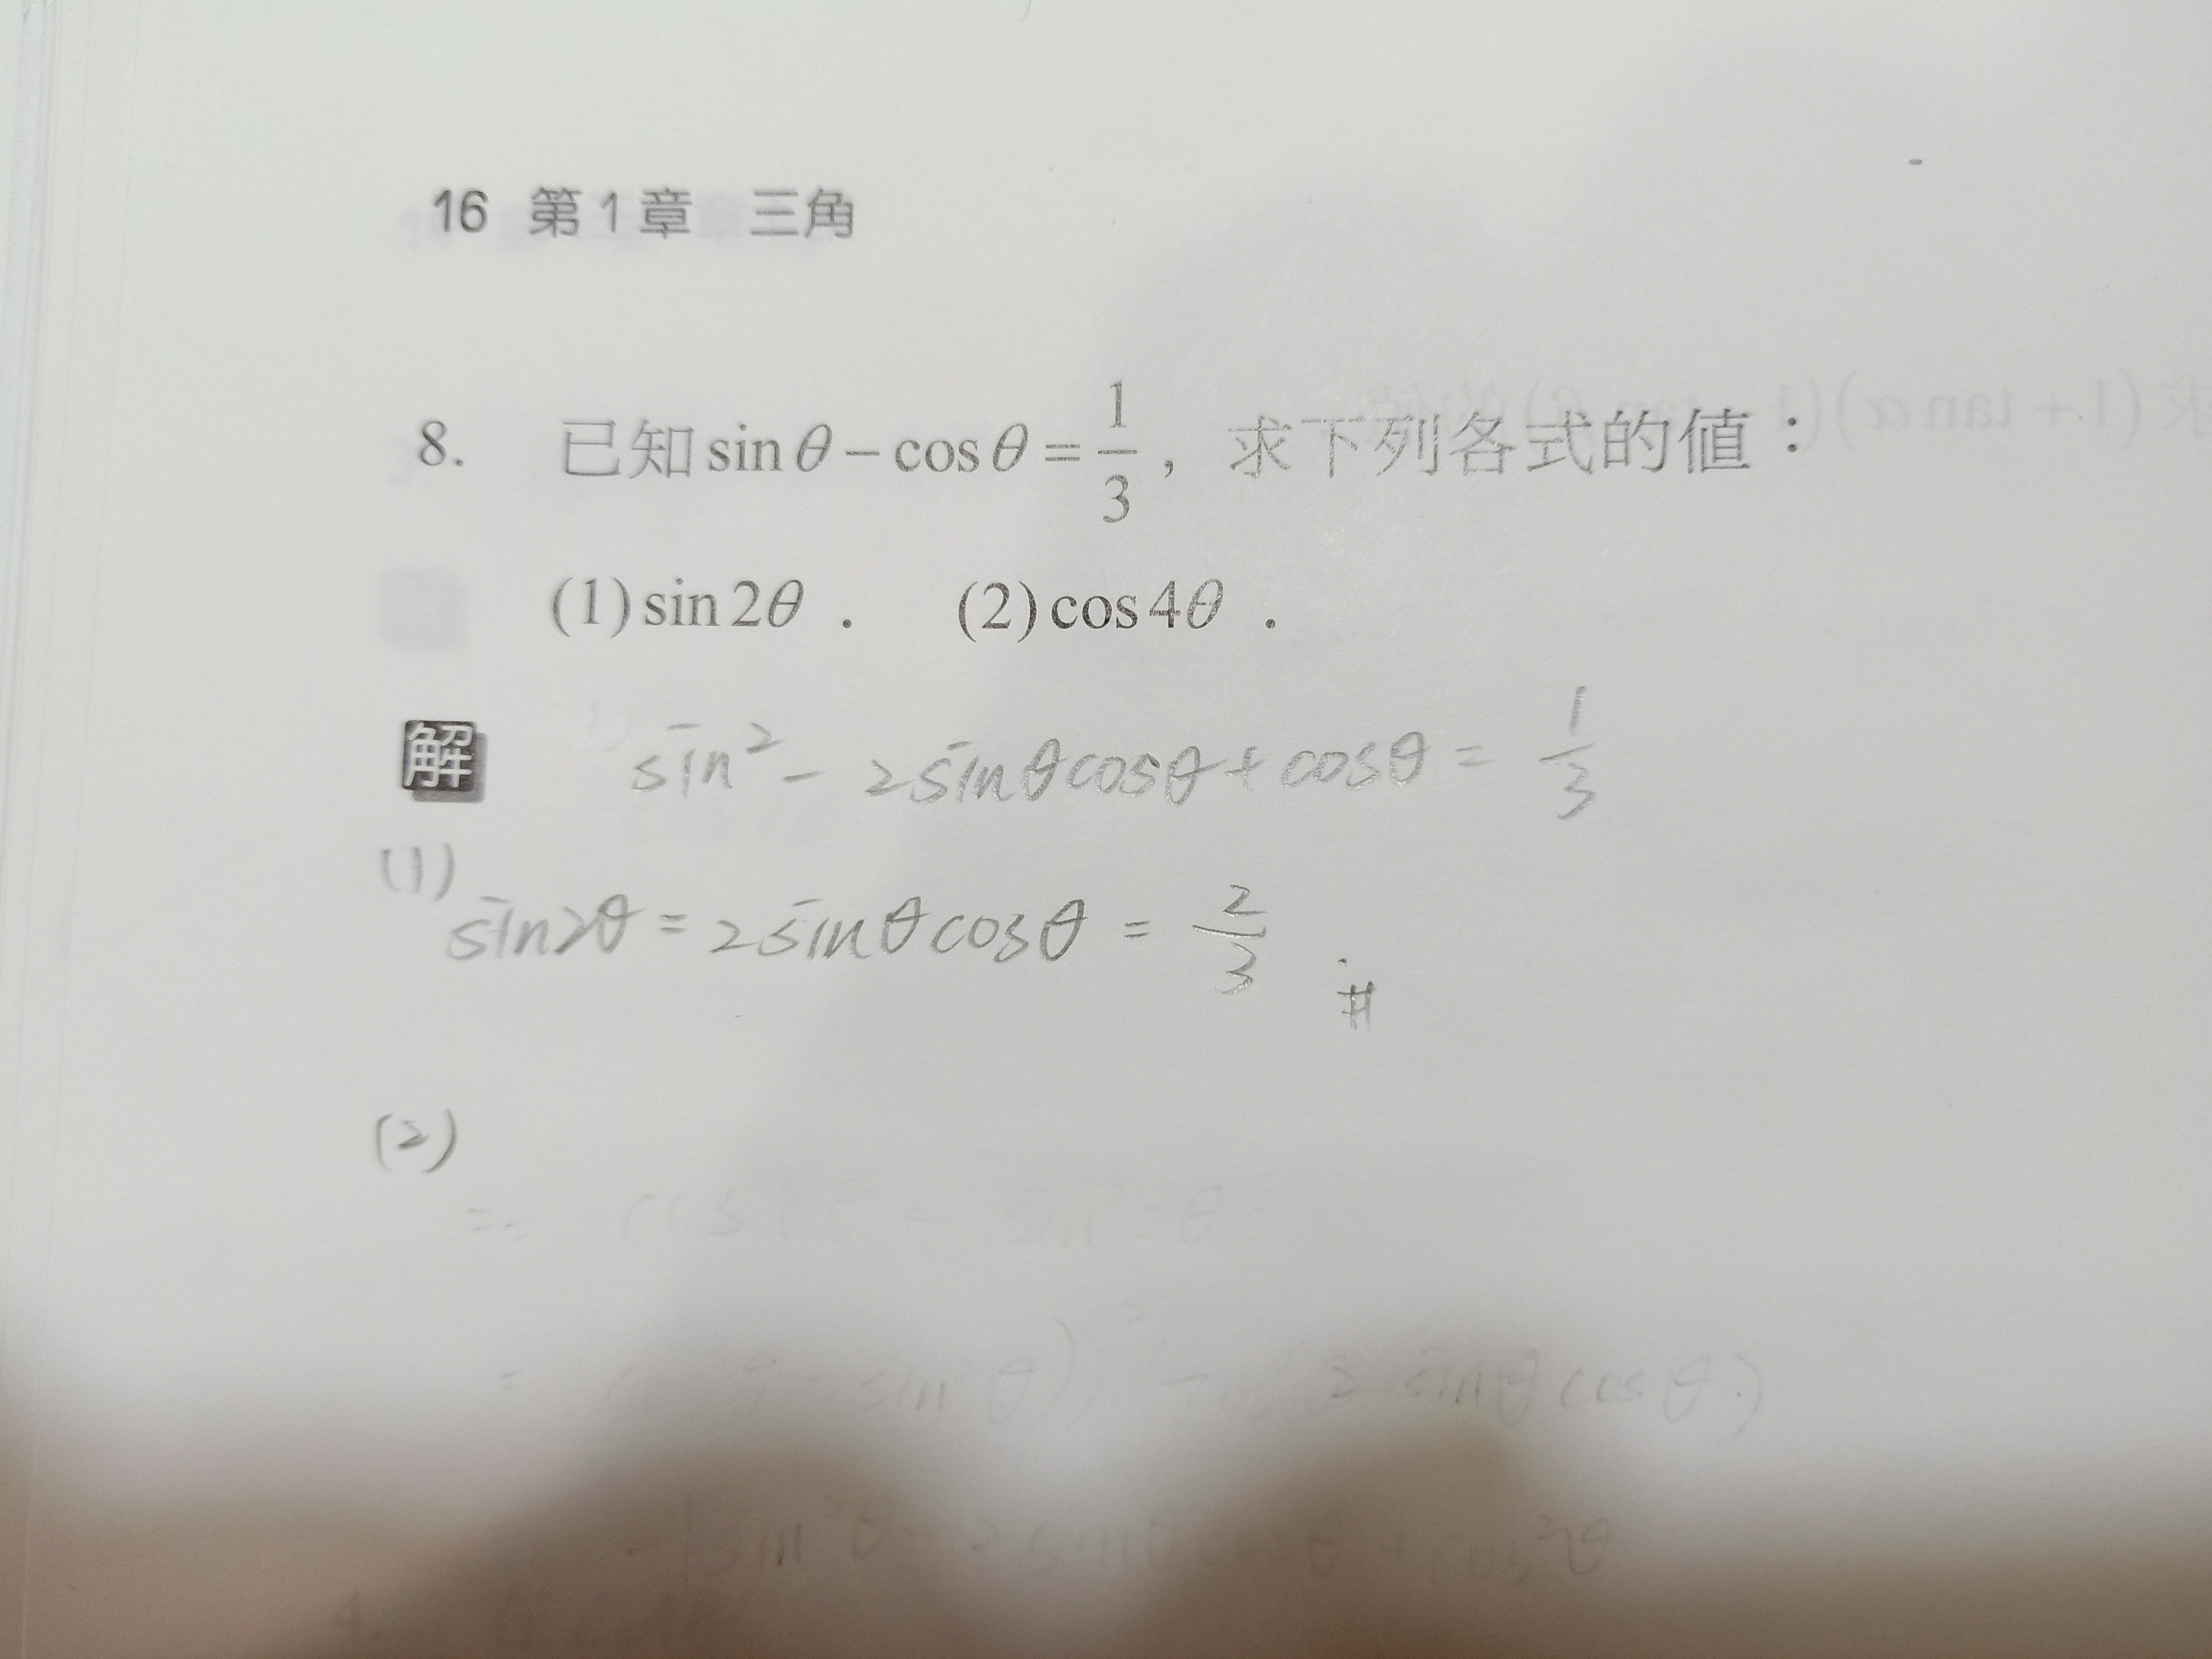 16 第1章 三角
8. 已知 sin θ − cos θ = 1/3，求下列各式的值：
(1) sin 2θ . (2) cos 4θ .
解 sin² − 2sinθcosθ + cosθ = 1/3
(1)
sin2θ = 2sinθcosθ = 2/3 . #
(2)